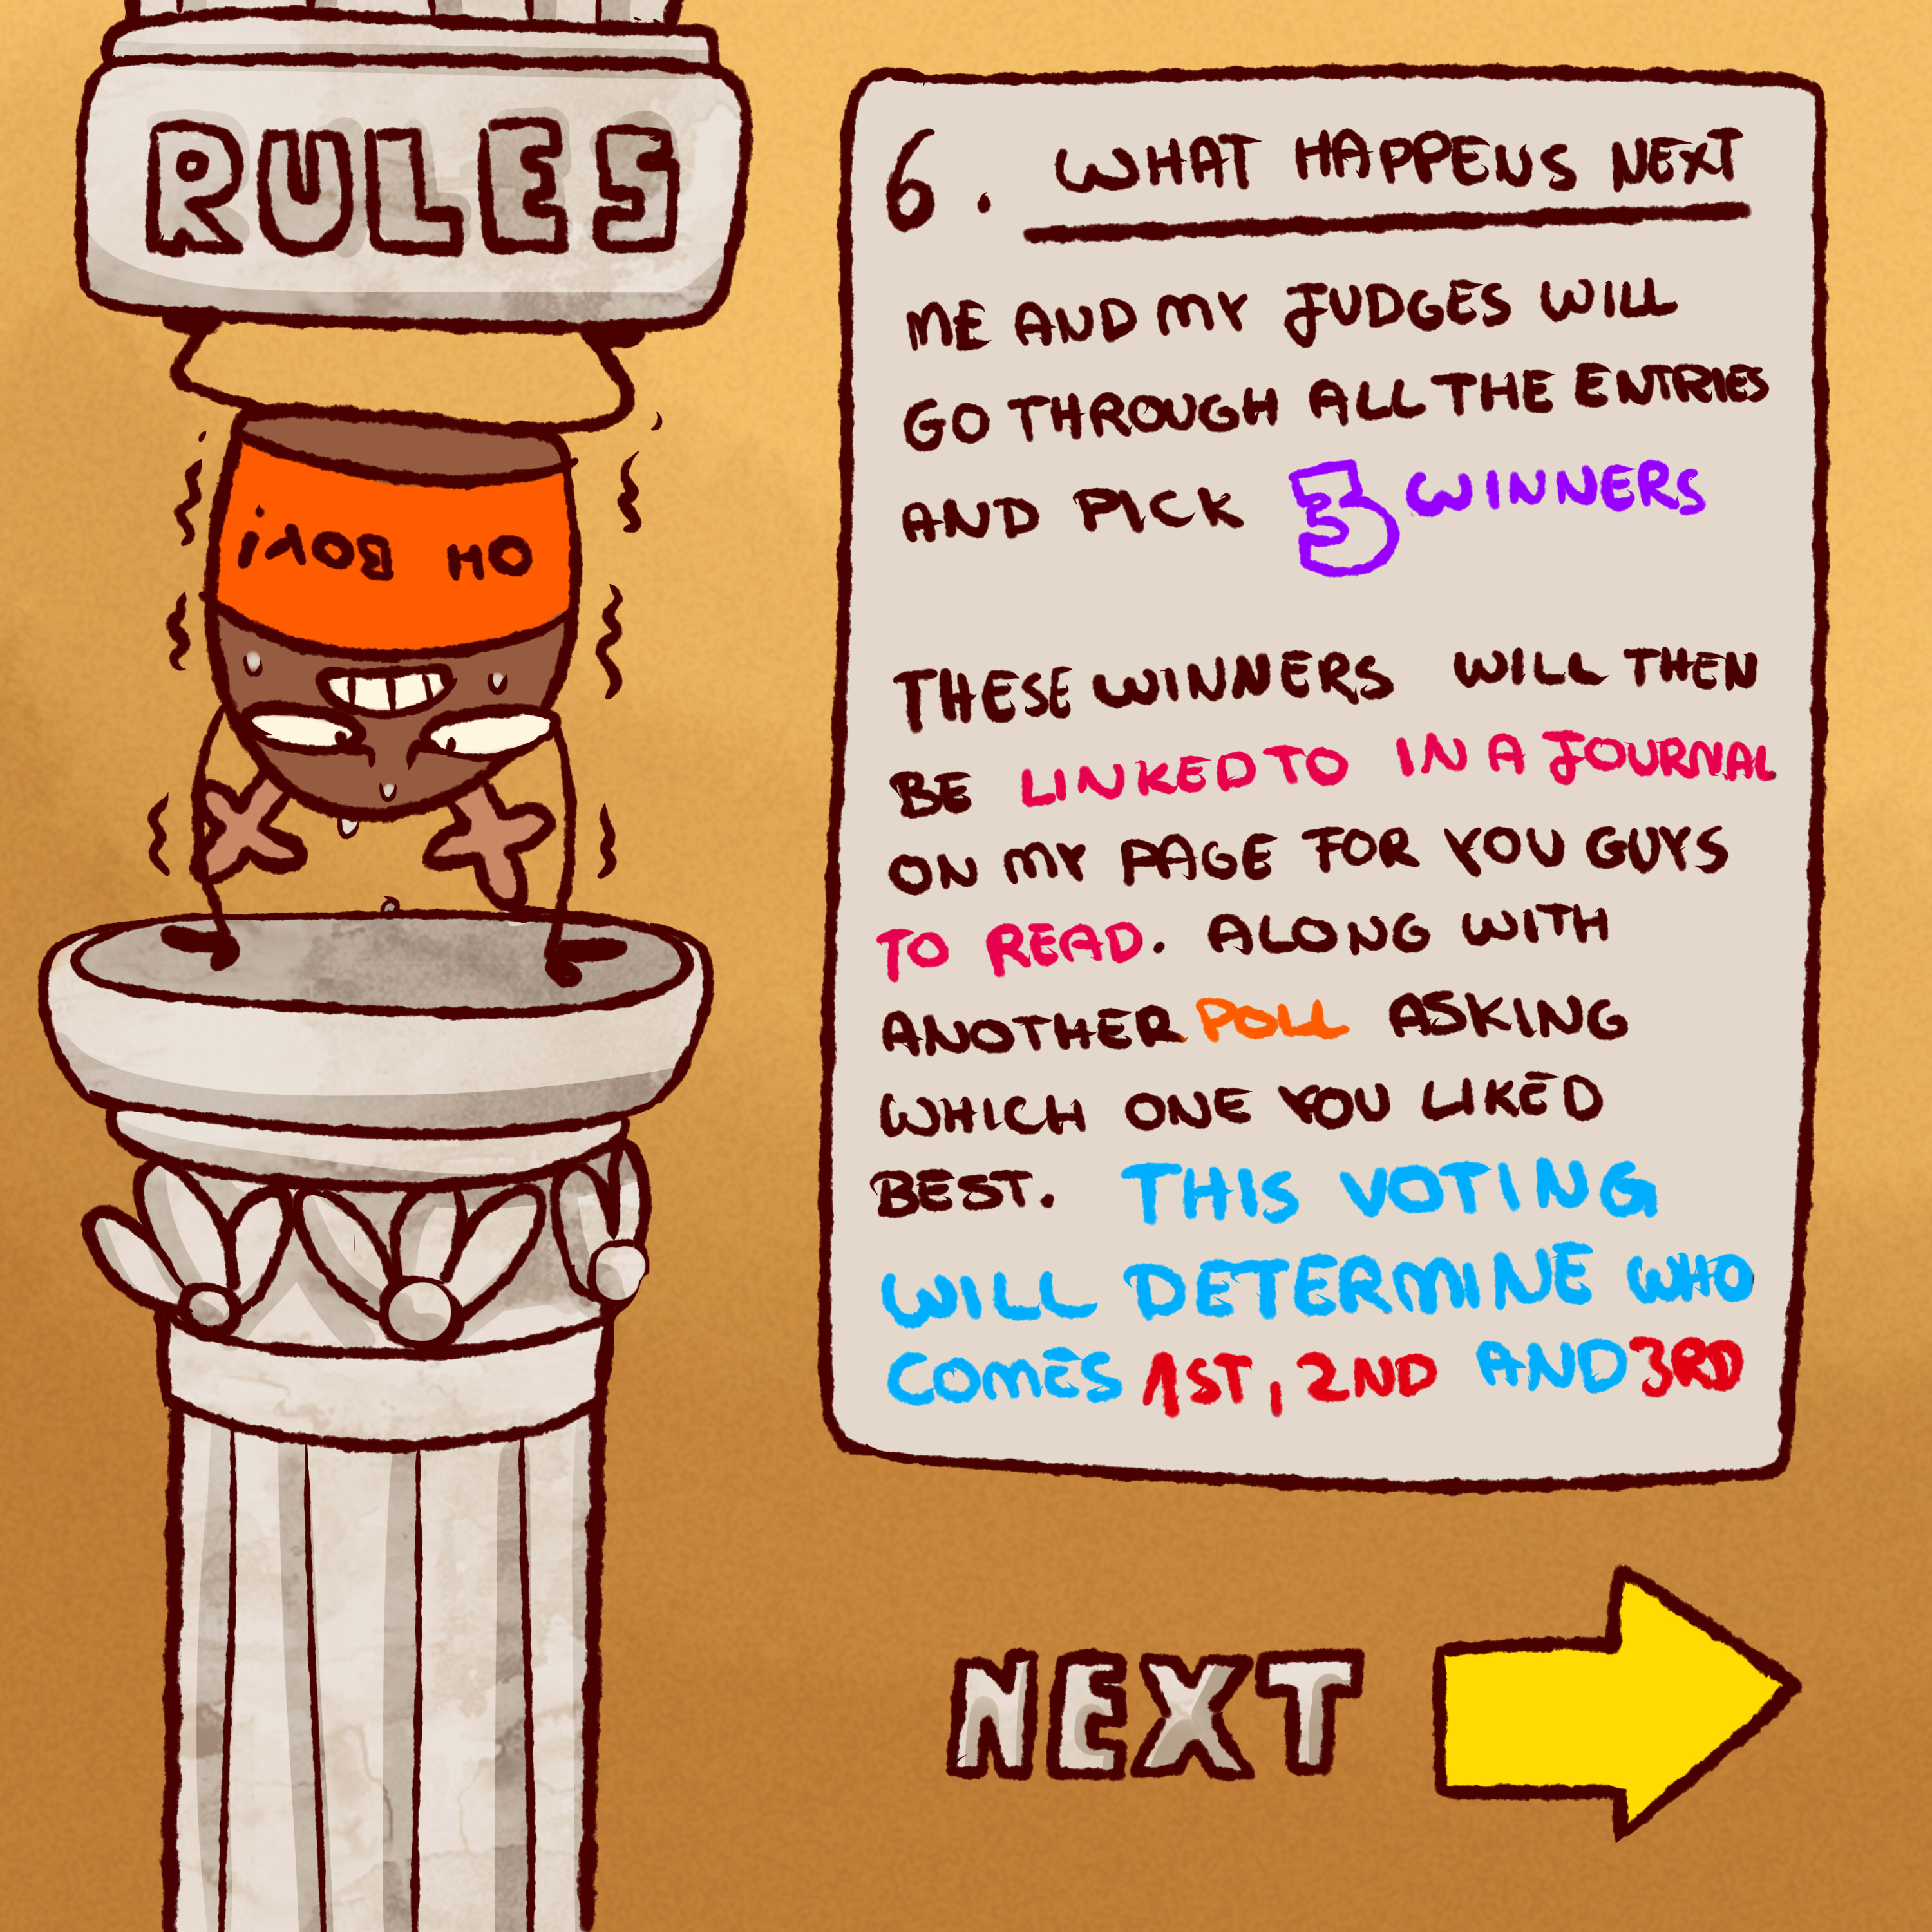 RULES
OH BOY!
6. WHAT HAPPENS NEXT
ME AND MY JUDGES WILL
GO THROUGH ALL THE ENTRIES
AND PICK 3 WINNERS
THESE WINNERS WILL THEN
BE LINKED TO IN A JOURNAL
ON MY PAGE FOR YOU GUYS
TO READ. ALONG WITH
ANOTHER POLL ASKING
WHICH ONE YOU LIKED
BEST. THIS VOTING
WILL DETERMINE WHO
COMES 1ST, 2ND AND 3RD
NEXT